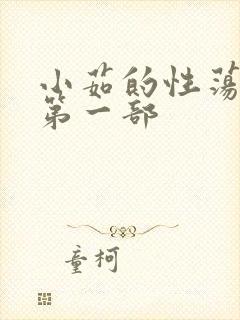 小茹的性荡
第一部
童柯